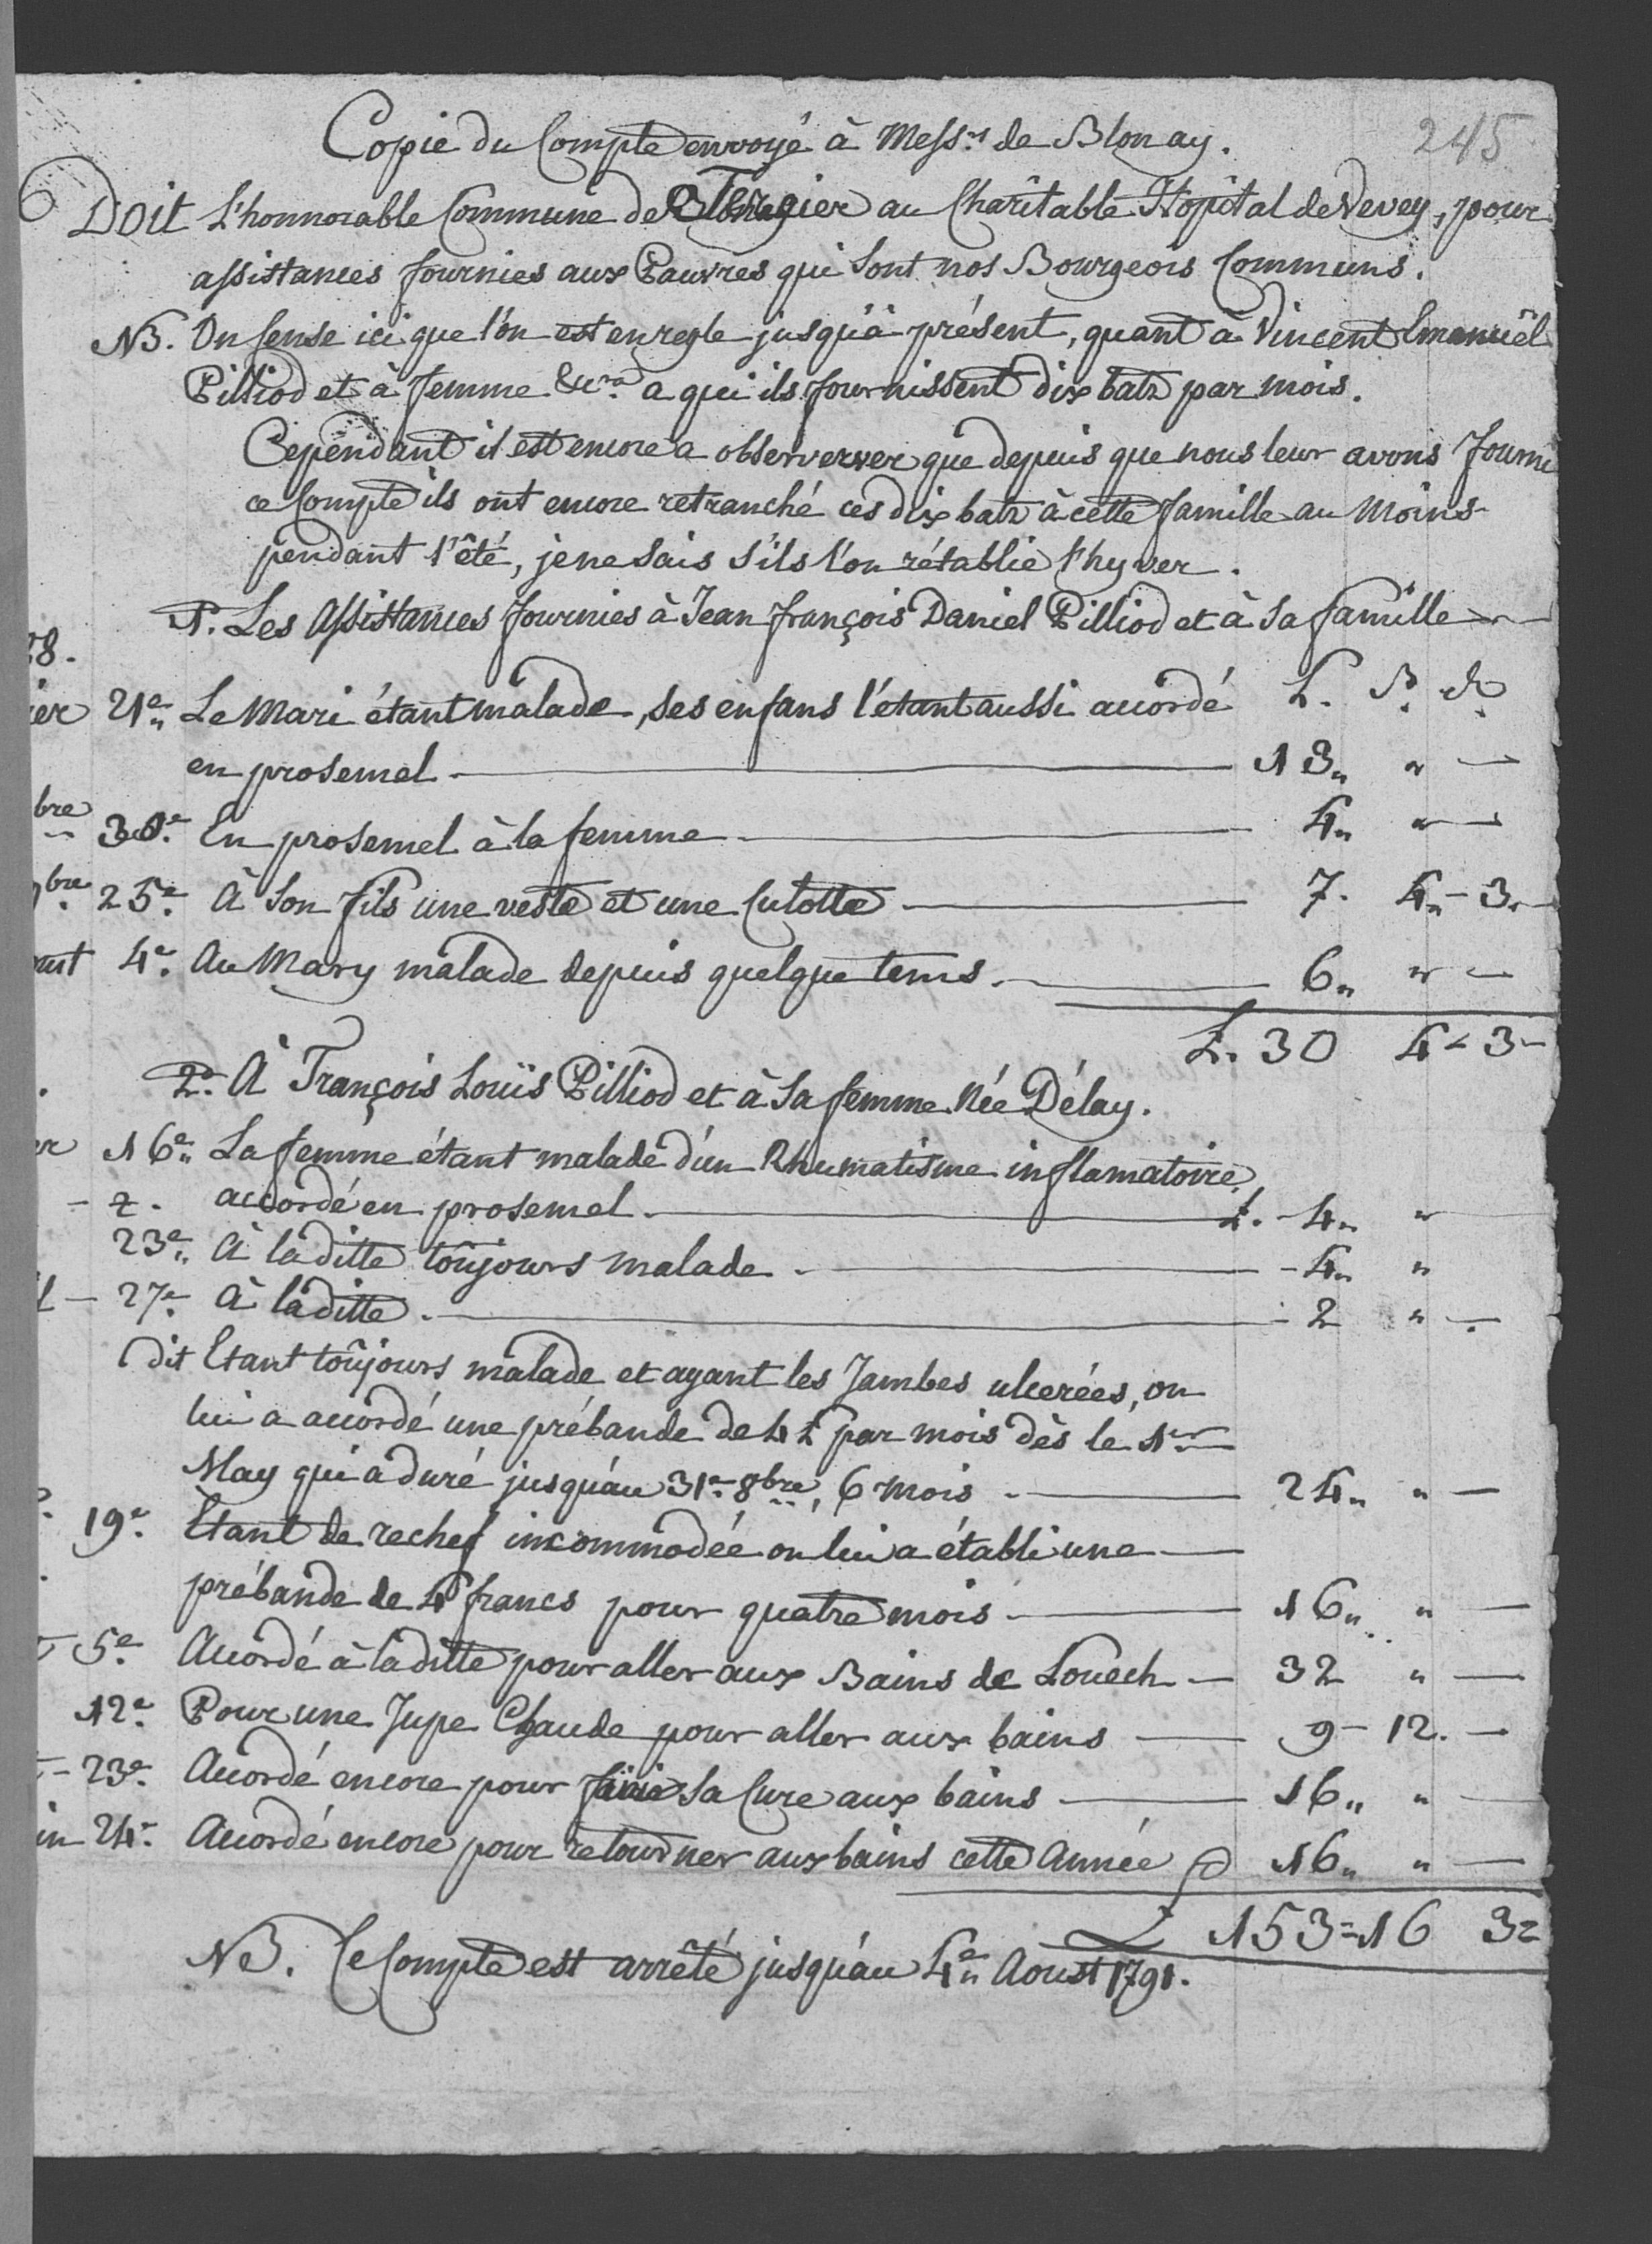 245
Copie du Compte envoyé à Mess.rs de Blonay.
Doit L'honnorable Commune de au Charitable Hôpital de Vevey, pour
assistances fournies aux Pauvres qui sont nos Bourgeois Communs.
NB. On sense ici que l'on est en regle jusqu'à présent, quant à Vincent Emanuël
Pilliod et à femme &c.ra a qui ils fournissent dix batz par mois.
Cependant il est encore a observerver que depuis que nous leur avons fourni
ce Compte ils ont encore retranché ces dix batz à cette famille au moins
pendant l'êté, je ne sais s'ils l'on rétablie l'hyver.
1.° Les Assistances fournies à Jean François Daniel Pilliod et à sa famille
88.
ier 21e. Le Mari étant malade, ses enfans l'étant aussi accordé L. S. D.
en prosemel. — 13 " —
bre 30e. En prosemel à la femme — 4 " —
bre 25e. À son fils une veste et une Culotte — 7. 4 - 3
out 4e. Au Mary malade depuis quelque tems. — 6 " —
L. 30 4 - 3
2.° À François Louïs Pilliod et à sa femme Née Délay.
er 16e. La femme étant malade d'un Rhumatisme inflamatoire,
accordé en prosemel. — L. 4 "
23e. À laditte toûjours malade. — 4 "
l — 27e. À laditte. — 2 " —
dit Etant toûjours malade et ayant les Jambes ulcerées, on
lui a accordé une prébande de 4 L par mois dès le 1er
May qui a duré jusqu'au 31e 8bre, 6 mois — 24 " —
19e. Etant de rechef incommodée on lui a établi une
prébande de 4 francs pour quatre mois — 16 " —
5e. Accordé à laditte pour aller aux Bains de Louech — 32 " —
12e. Pour une Jupe Chaude pour aller aux bains — 9 - 12. —
23e. Accordé encore pour sa Cure aux bains — 16 " —
in 24e. Accordé encore pour retourner aux bains cette Année 16 " —
L 153 = 16 3 =
NB. Ce Compte est arrêté jusqu'au 4e. Aoust 1791.